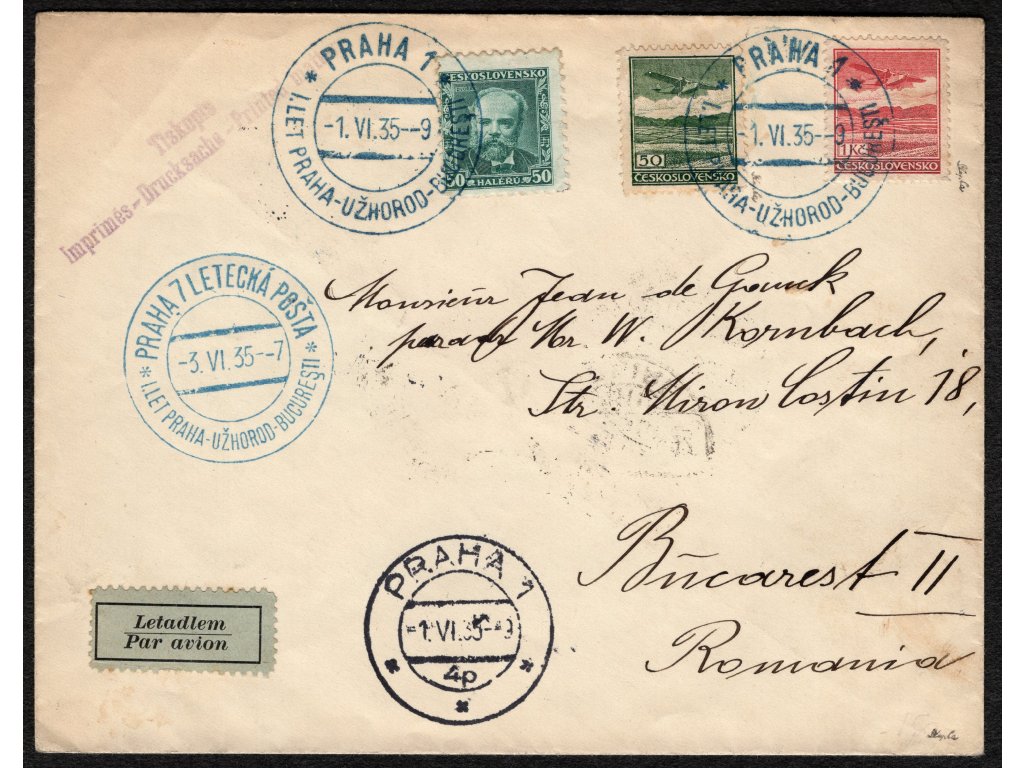 Tiskopis
Imprimés-Drucksache-Printed
* PRAHA 1 *
-1.VI.35--9
I.LET PRAHA-UŽHOROD-BUCUREŞTI
ČESKOSLOVENSKO
50 HALÉŘŮ 50
50
ČESKOSLOVENSKO
* PRAHA 1 *
-1.VI.35--9
I.LET PRAHA-UŽHOROD-BUCUREŞTI
1 Kč
ČESKOSLOVENSKO
* PRAHA 7 LETECKÁ POŠTA *
-3.VI.35--7
I.LET PRAHA-UŽHOROD-BUCUREŞTI
Monsieur Jean de
Mr. W. Kornbach,
Str. Miron Costin 18,
Bucarest II
Romania
PRAHA 1
-1.VI.35--9
* 4p *
*
Letadlem
Par avion